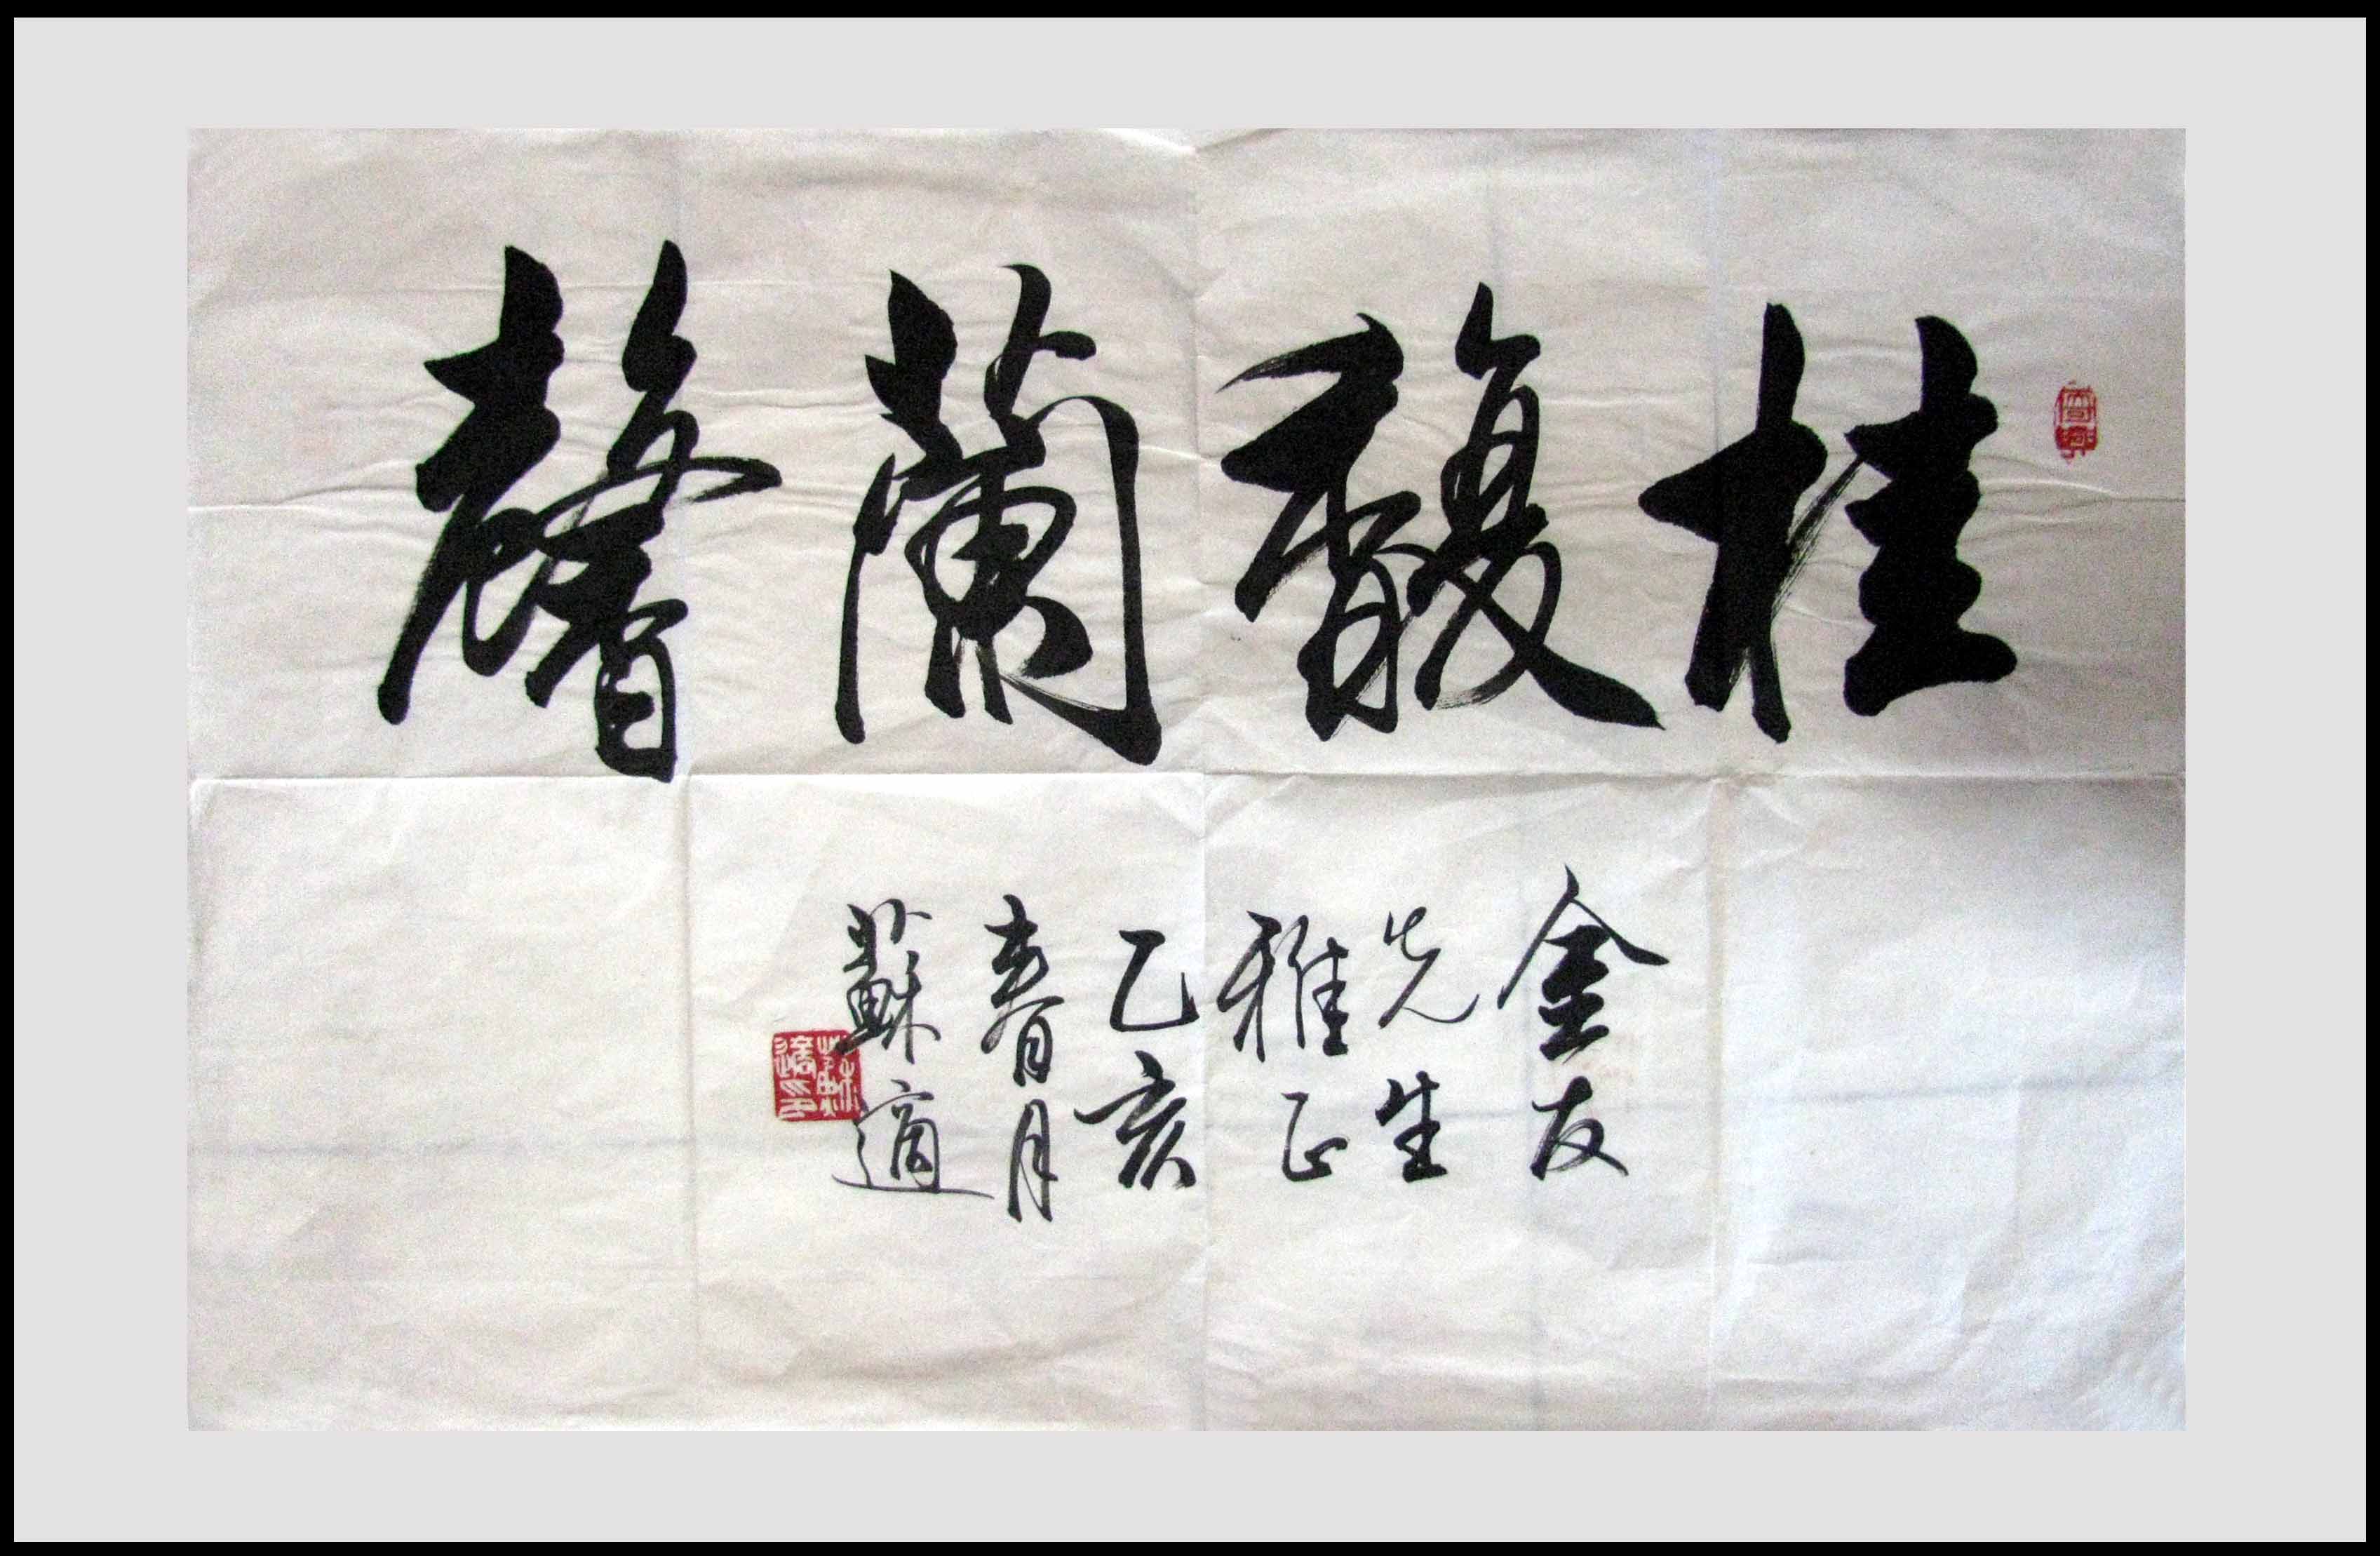 桂馥蘭馨
金友
先生
雅正
乙亥
春月
蘇適
蘇適之印